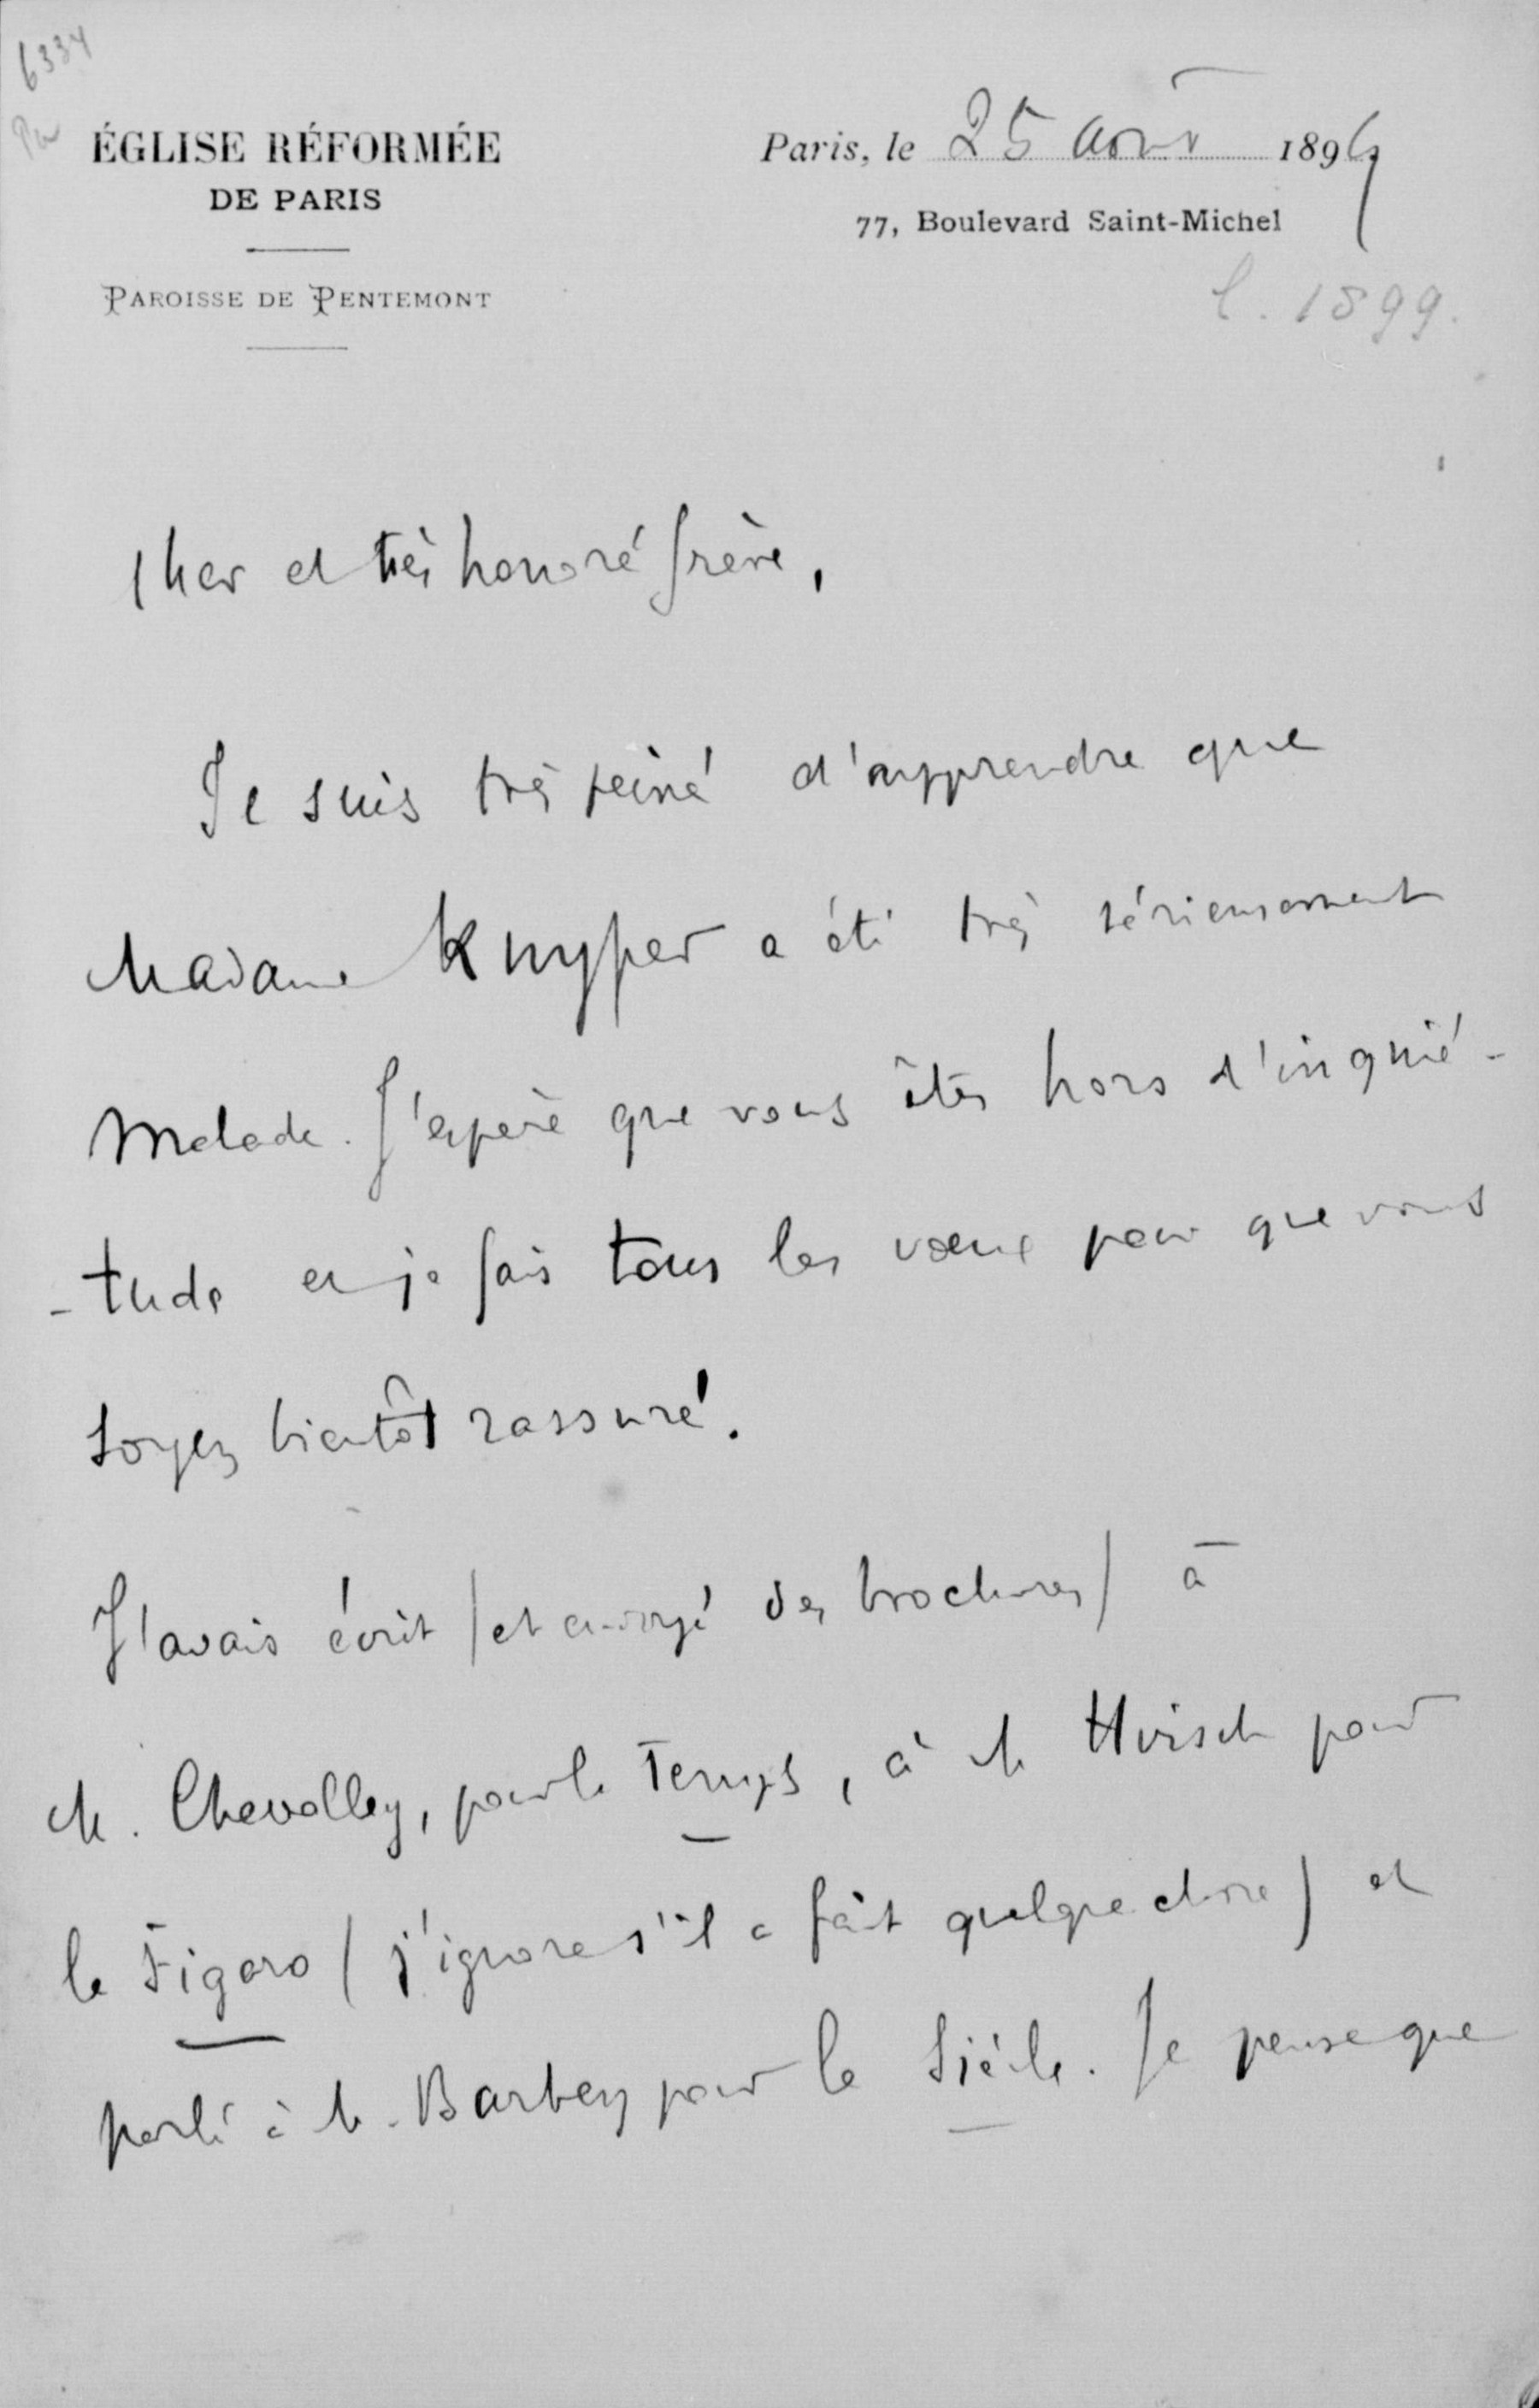 6334
ÉGLISE RÉFORMÉE
DE PARIS
PAROISSE DE PENTEMONT
Paris, le 25 août 1899
77, Boulevard Saint-Michel
l. 1899.
Cher et très honoré frère,
Je suis très peiné d'apprendre que
Madame Kuyper a été très sérieusement
malade. J'espère que vous êtes hors d'inquié-
-tude et je fais tous les vœux pour que vous
soyez bientôt rassuré.
J'avais écrit (et envoyé des brochures) à
M. Chevalley, pour le Temps, à M. Hirsch pour
le Figaro (j'ignore s'il a fait quelque chose) et
parlé à M. Barbey pour le Siècle. Je pense que